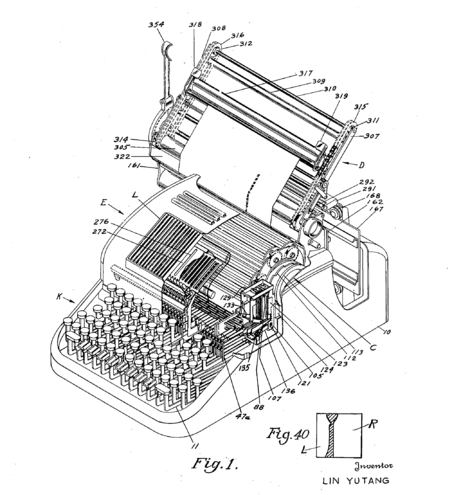 354
318
308
316
312
317
309
310
319
315
311
307
D
314
305
322
161
292
291
168
162
167
L
E
276
272
K
129
133
10
C
113
112
123
124
105
121
136
107
88
135
47a
11
Fig. 1.
Fig. 40
L
R
Inventor
LIN YUTANG